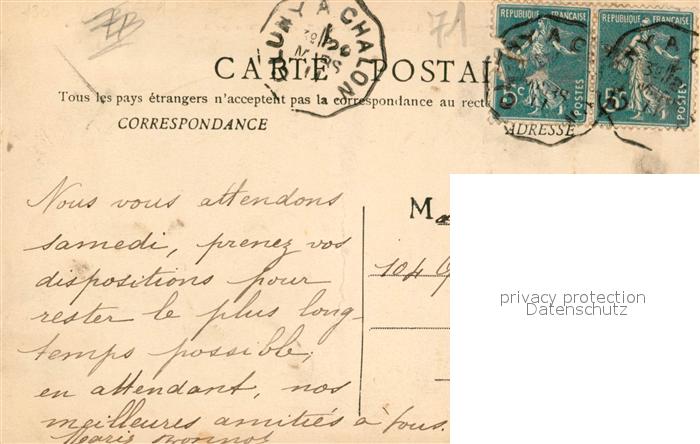 71
CLUNY A CHALON
REPUBLIQUE FRANÇAISE
REPUBLIQUE FRANÇAISE
5c POSTES
5c POSTES
CARTE POSTAL
Tous les pays étrangers n'acceptent pas la correspondance au recto
CORRESPONDANCE
ADRESSE
M
104
Nous vous attendons
samedi, prenez vos
dispositions pour
rester le plus long-
temps possible,
en attendant, nos
meilleures amitiés à tous.
privacy protection
Datenschutz